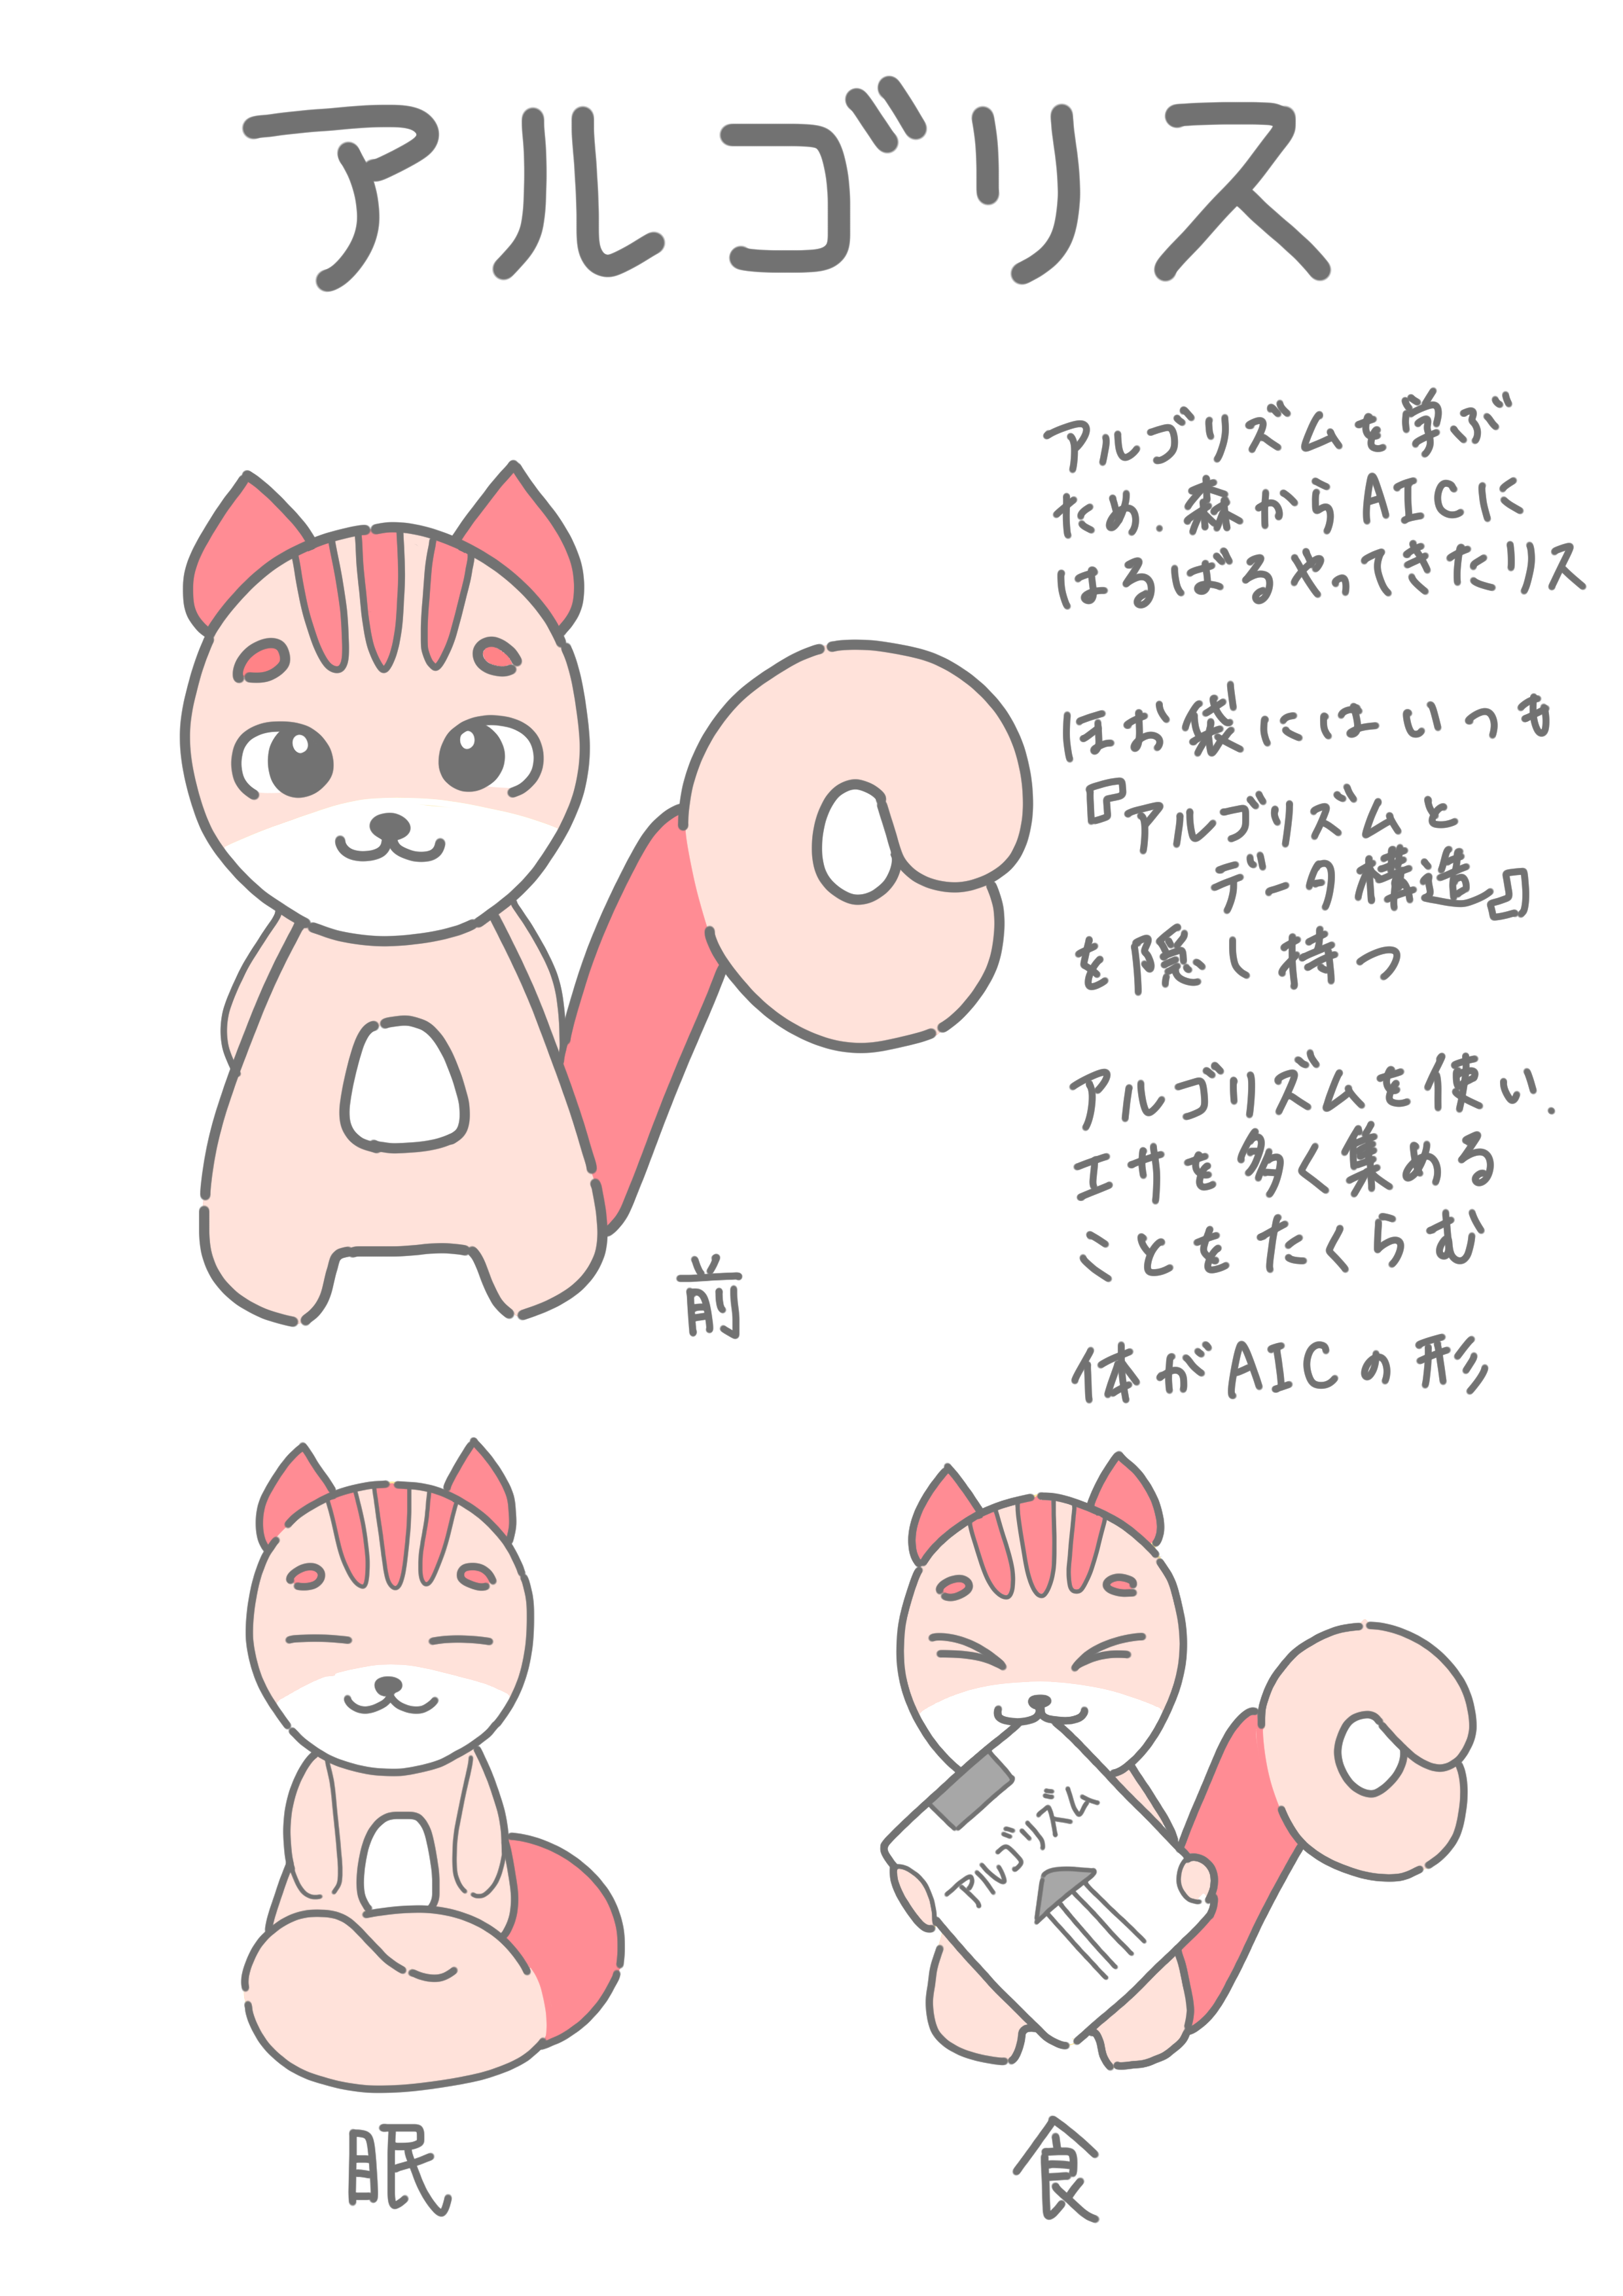 アルゴリス
アルゴリズムを学ぶ
ため、森からAICに
はるばるやってきたリス
ほお袋にはいつも
『アルゴリズムと
データ構造』
を隠し持つ
アルゴリズムを使い、
エサを多く集める
ことをたくらむ
体がAICの形
前
アルゴリズム
眠
食